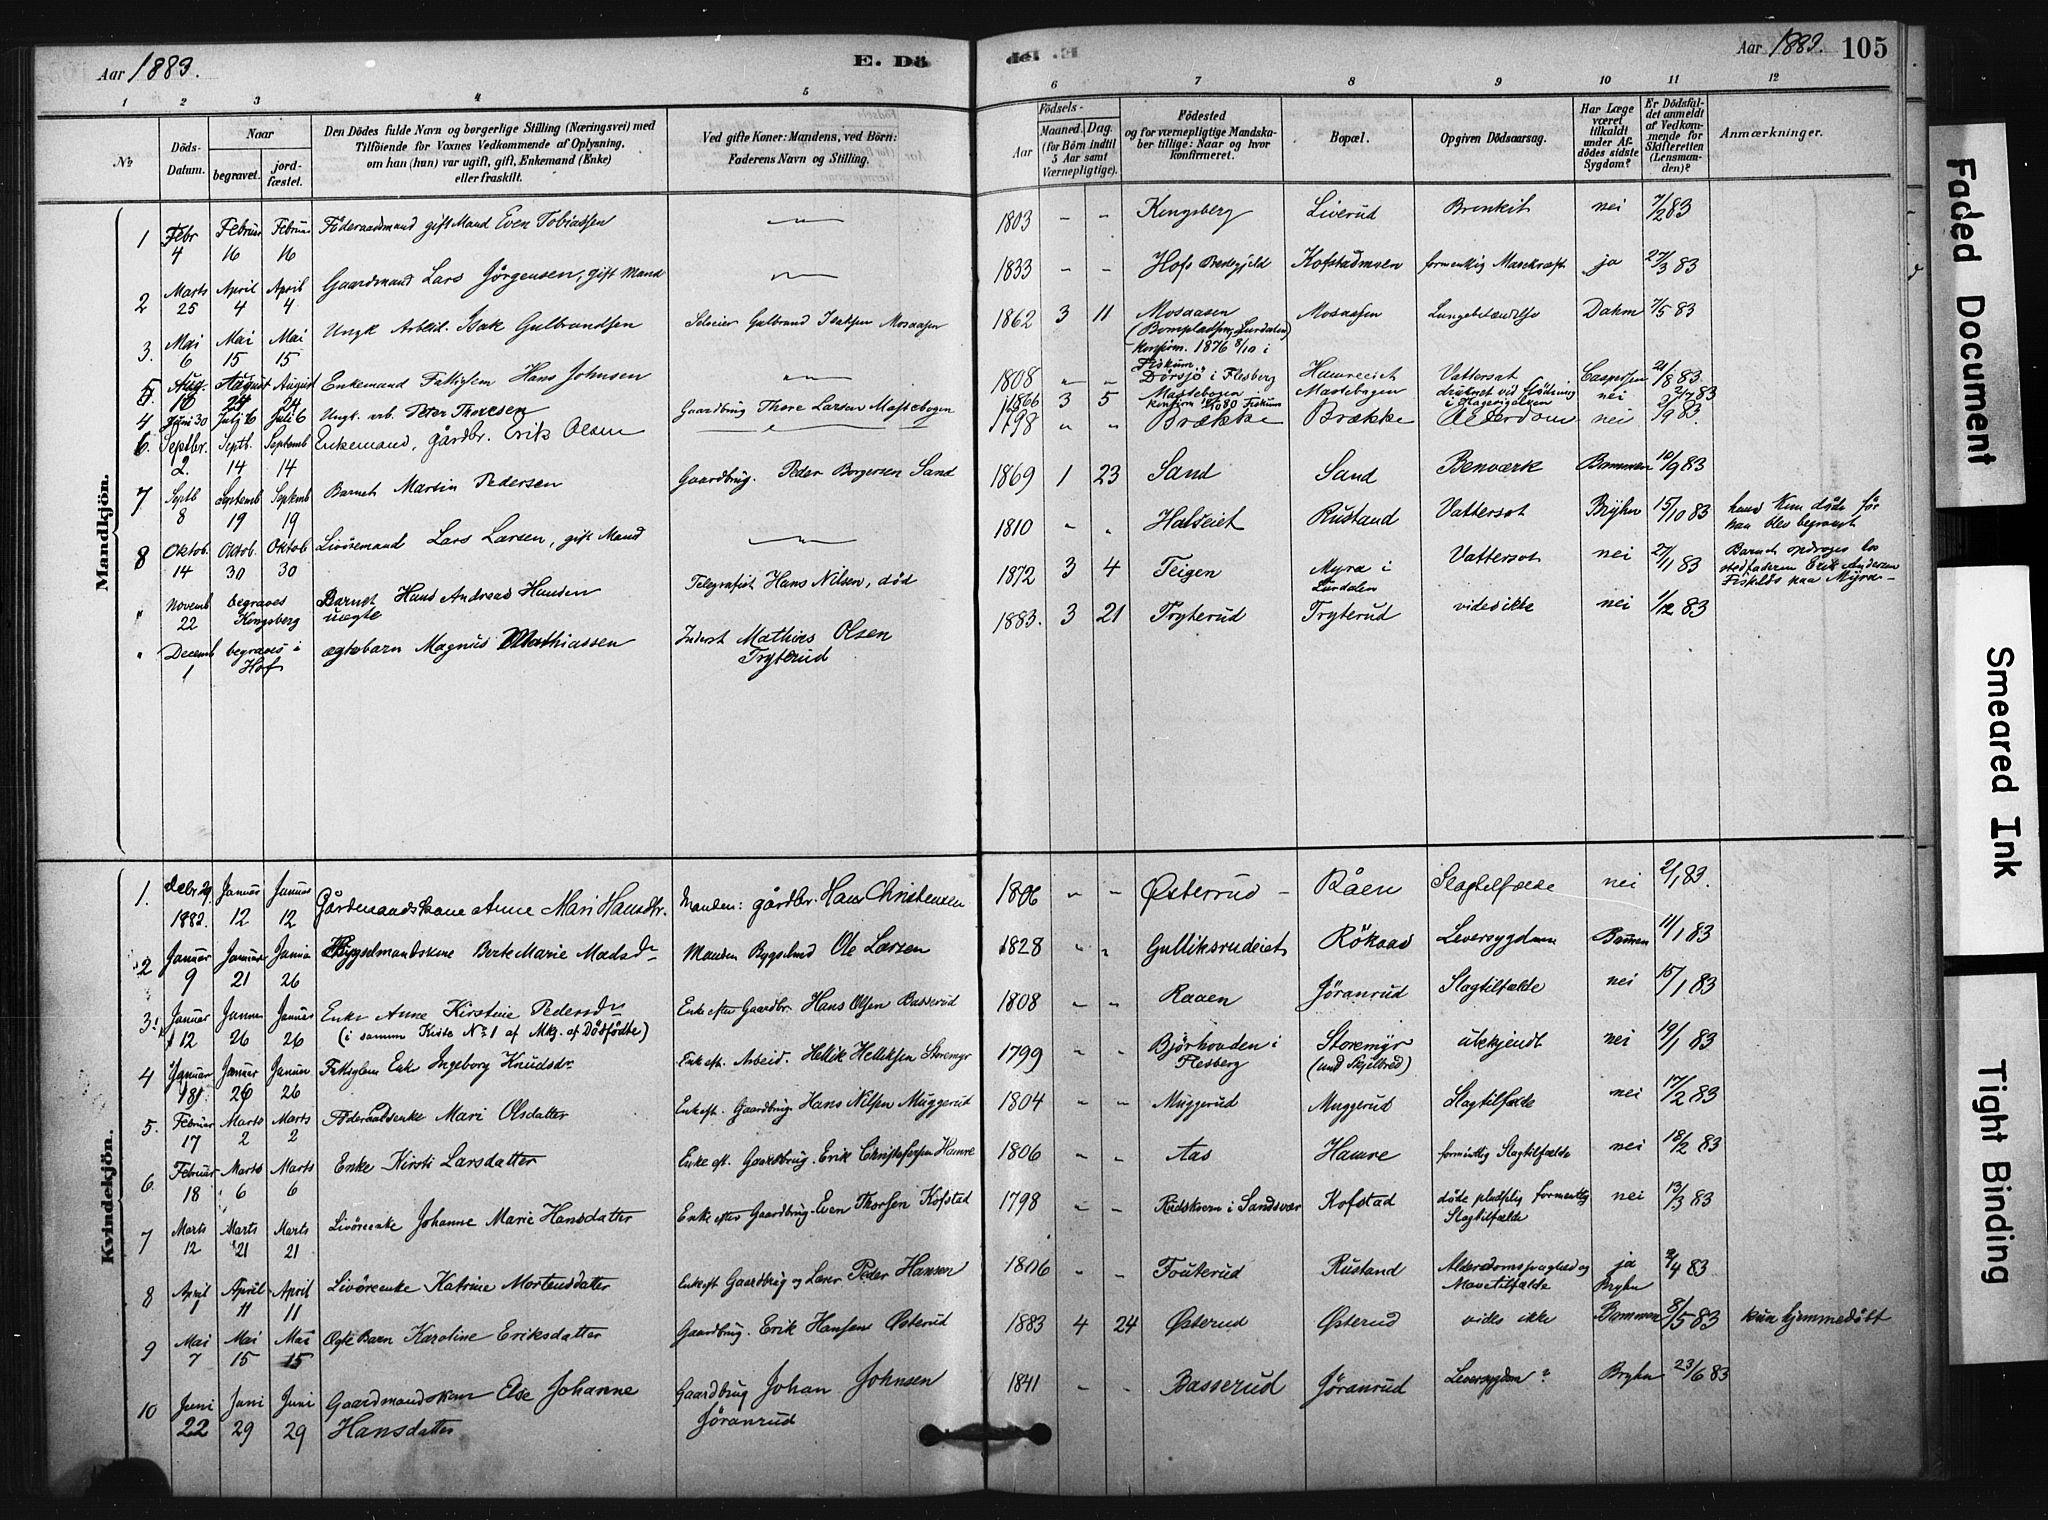 Aar 1883.
E. Dö
de. E
Aar 1883. 105
1 2 3 4 5 6 7 8 9 10 11 12
No
Döds-Datum.
Naar
begravet.
jord-fæstet.
Den Dödes fulde Navn og borgerlige Stilling (Næringsvei) med
Tilföiende for Voxnes Vedkommende af Oplysning,
om han (hun) var ugift, gift, Enkemand (Enke)
eller fraskilt.
Ved gifte Koner: Mandens, ved Börn:
Faderens Navn og Stilling.
Födsels-
Aar
Maaned. Dag.
(for Börn indtil
5 Aar samt
Værnepligtige).
Födested
og for værnepligtige Mandska-
ber tillige: Naar og hvor
konfirmeret.
Bopæl.
Opgiven Dödsaarsag.
Har Læge
været
tilkaldt
under Af-
dödes sidste
Sygdom?
Er Dödsfal-
det anmeldt
af Vedkom-
mende for
Skifteretten
(Lensman-
den)?
Anmærkninger.
Mandkjön.
1 Febr 4 Februar 16 Februar 16 Föderaadsmand gift Mand Even Tobiassen 1803 - - Kongsberg Liverud Bronkit nei 7/2 83
2 Marts 25 April 4 April 4 Gaardmand Lars Jörgensen, gift Mand 1833 - - Hofs Præstegjeld Kofstadmoen formentlig Mavekræft ja 27/3 83
3. Mai 6 Mai 15 Mai 15 Ungk. Arbeid. Isak Gulbrandsen Selveier Gulbrand Isaksen Mosaasen 1862 3 11 Mosaasen
(Bompladsen, Lurdalen)
Konfirm. 1876 8/10 i
Fiskum.
Mosaasen Lungebetændelse Dahm 7/5 83
5. Aug. 16 August 24 August 24 Enkemand Fattiglem Hans Johnsen 1808 " " Dörsjö i Flesberg Hamreeiet Vattersot Caspersen 21/8 83
4 Juni 30 Juli 6 Juli 6 Ungk. arb. Peter Thoresen Gaardbrug. Thore Larsen Mastebogen 1866 3 5 Mastebogen
konfirm 10/10 80 Fiskum
Mastebogen druknet ved Flödning
i Hagavigelven nei 2/7 83
6. Septbr. 2. Septb. 14 Septemb 14 Enkemand, gårdbr. Erik Olsen 1798 " " Brække Brække Alderdom nei 1/9 83.
7 Septb 8 Septemb 19 Septemb 19 Barnet Martin Pedersen Gaardbrug. Peder Borgersen Sand 1869 1 23 Sand Sand Benværk Bommen 10/9 83
8 Oktob. 14 Oktob. 30 Oktob 30 Livöremand Lars Larsen, gift Mand 1810 " " Halseiet Rustand Vattersot Bryhn 15/10 83 hans Kone döde för
han blev begravet
" Novemb 22 begraves Kongsberg Barnet Hans Andreas Hansen
uægte
Telegrafist Hans Nilsen, död 1872 3 4 Teigen Myra i
Lurdalen
Vattersot nei 27/11 83 Barnet opdroges hos
stedfaderen Erik Andersen
Fiskelös paa Myra-
" Decemb 1 begraves i Hof ægtebarn Magnus Mathiassen Inderst Mathias Olsen
Tryterud
1883. 3 21 Tryterud Tryterud vides ikke nei 1/12 83
Kvindekjön.
1. Decbr 29. 1882. Januar 12 Januar 12 Gårdmandskone Anne Mari Hansdtr. Manden: gårdbr. Hans Christensen 1806 " " Østerrud - Råen Slagtilfælde nei 2/1 83.
2 Januar 9 Januar 21 Januar 26 Bygselmandskone Berte Marie Madsdr Manden Bygselmd Ole Larsen 1828 " " Gulliksrudeiet Rökaas Leversygdom Bommen 11/1 83
3. Januar 12 Januar 26 Januar 26 Enke Anne Kirstine Pedersdr
(i samme Kiste No 1 af Mkj. af Dödfödte)
Enke efter Gaardbr. Hans Olsen Basserud 1808 " " Raaen Jöranrud Slagtilfælde nei 15/1 83
4 Januar 18 Januar 26 Januar 26 Fattiglem Enke Ingeborg Knudsdr Enke eft. Arbeid. Hellik Helliksen Storemyr 1799 " " Bjórhovden i
Flesberg
Storemyr
(und Skjelbred)
ubekjendt nei 19/1 83
5. Februar 17 Marts 2 Marts 2 Föderaadsenke Mari Olsdatter Enke eft. Gaardbrug. Hans Nilsen Muggerud 1804 " " Muggerud Muggerud Slagtilfælde nei 17/2 83
6. Februar 18 Marts 6 Marts 6 Enke Kirsti Larsdatter Enke eft. Gaardbrug. Erik Christofersen Hamre 1806 " " Aas Hamre formentlig Slagtilfælde nei 18/2 83
7 Marts 12 Marts 21 Marts 21 Livöreenke Johanne Marie Hansdatter Enke efter Gaardbrug. Even Thorsen Kofstad 1798 " " Rudskvern i Sandsvær Kofstad döde pludselig formentlig
Slagtilfælde nei 13/3 83
8 April 1 April 11 April 11 Livöreenke Katrine Mortensdatter Enke eft. Gaardbrug og Lærer Peder Hansen 1806 " " Fouterud Rustand Alderdomssvaghed og
Mavetilfælde
ja
Bryhn
2/4 83
9 Mai 7 Mai 15 Mai 15 Ægte Barn Karoline Eriksdatter Gaardbrug. Erik Hansen Østerud 1883 4 24 Østerud Østerud vides ikke Bommen 8/5 83 kun hjemmedöbt
10 Juni 22 Juni 29 Juni 29 Gaardmandskone Else Johanne
Hansdatter
Gaardbrug Johan Johnsen
Jöranrud
1841 " " Basserud Jöranrud Leversygdom? Bryhn 23/6 83
Faded Document
Smeared Ink
Tight Binding